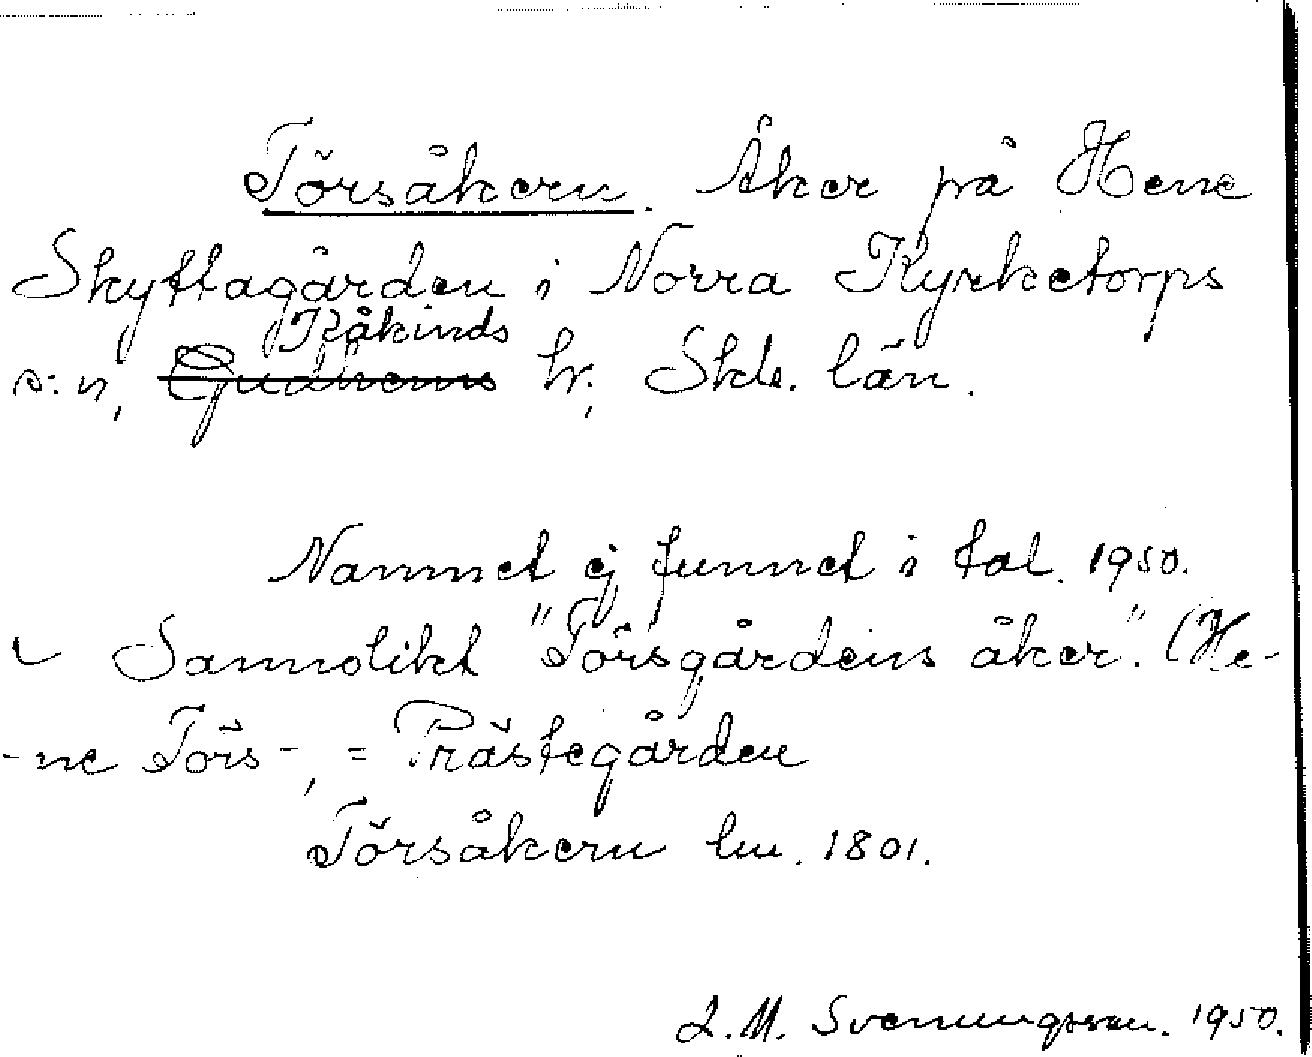 Törsåkern. Åker på Hene
Skyttagården i Norra Kyrketorps
Kåkinds
s:n, Gudhems hr, Skbs. län.
Namnet ej funnet i tal. 1950.
Sannolikt "Törsgårdens åker". (He-
-ne Törs-, = Prästegården
Törsåkern lm. 1801.
L.M. Svenungsson. 1950.